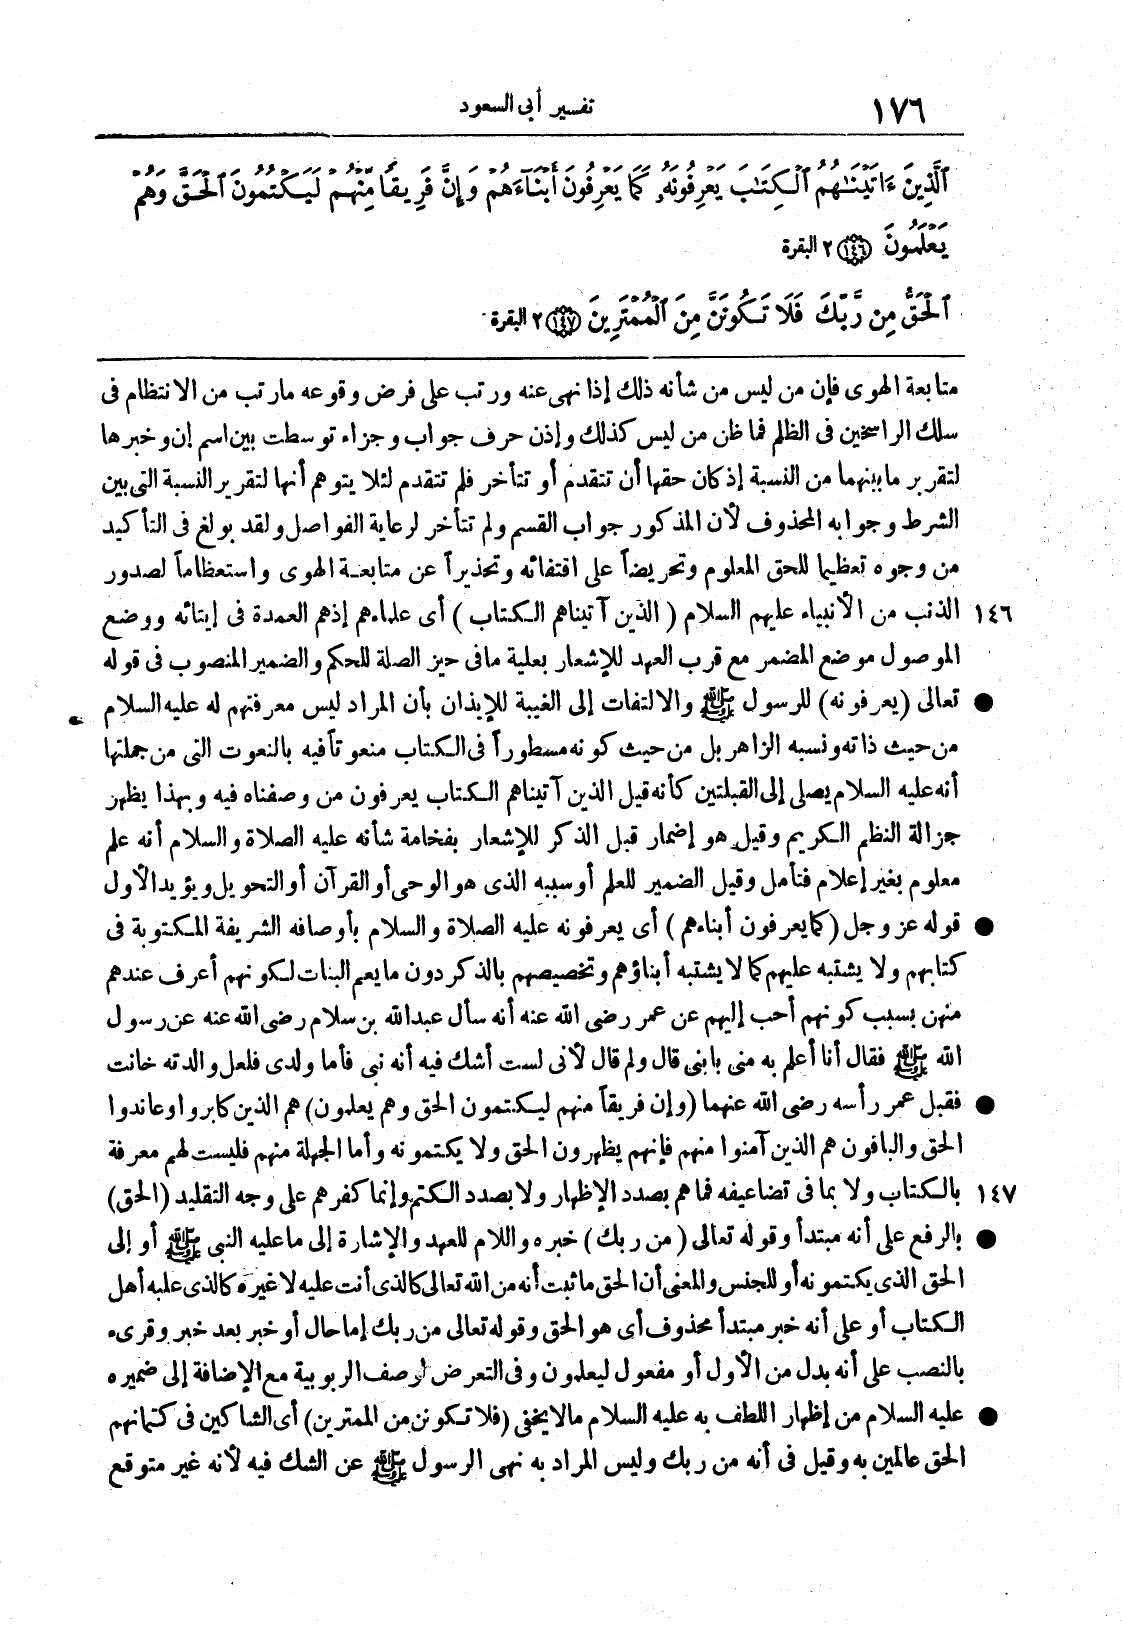 ١٧٦
تفسير أبى السعود
ٱلَّذِينَ ءَاتَيْنَٰهُمُ ٱلْكِتَٰبَ يَعْرِفُونَهُۥ كَمَا يَعْرِفُونَ أَبْنَآءَهُمْ وَإِنَّ فَرِيقًا مِّنْهُمْ لَيَكْتُمُونَ ٱلْحَقَّ وَهُمْ
يَعْلَمُونَ ١٤٦ ٢ البقرة
ٱلْحَقُّ مِن رَّبِّكَ فَلَا تَكُونَنَّ مِنَ ٱلْمُمْتَرِينَ ١٤٧ ٢ البقرة
متابعة الهوى فإن من ليس من شأنه ذلك إذا نهى عنه ورتب على فرض وقوعه ما رتب من الانتظام فى
سلك الراسخين فى الظلم فما ظن من ليس كذلك وإذن حرف جواب وجزاء توسطت بين اسم إن وخبرها
لتقرير ما بينهما من النسبة إذ كان حقها أن تتقدم أو تتأخر فلم تتقدم لئلا يتوهم أنها لتقرير النسبة التى بين
الشرط وجوابه المحذوف لأن المذكور جواب القسم ولم تتأخر لرعاية الفواصل ولقد بولغ فى التأكيد
من وجوه تعظيما للحق المعلوم وتحريضاً على اقتفائه وتحذيراً عن متابعة الهوى واستعظاماً لصدور
١٤٦ الذنب من الأنبياء عليهم السلام ( الذين آتيناهم الكتاب ) أى علماءهم إذهم العمدة فى إيتائه ووضع
الموصول موضع المضمر مع قرب العهد للإشعار بعلية ما فى حيز الصلة للحكم والضمير المنصوب فى قوله
● تعالى (يعرفونه) للرسول ﷺ والالتفات إلى الغيبة للإيذان بأن المراد ليس معرفتهم له عليه السلام
من حيث ذاته ونسبه الزاهر بل من حيث كونه مسطوراً فى الكتاب منعوتاً فيه بالنعوت التى من جملتها
أنه عليه السلام يصلى إلى القبلتين كأنه قيل الذين آتيناهم الكتاب يعرفون من وصفناه فيه وبهذا يظهر
جزالة النظم الكريم وقيل هو إضمار قبل الذكر للإشعار بفخامة شأنه عليه الصلاة والسلام أنه علم
معلوم بغير إعلام فتأمل وقيل الضمير للعلم أو سببه الذى هو الوحى أو القرآن أو التحويل ويؤيد الأول
● قوله عز وجل (كما يعرفون أبناءهم ) أى يعرفونه عليه الصلاة والسلام بأوصافه الشريفة المكتوبة فى
كتابهم ولا يشتبه عليهم كما لا يشتبه أبناؤهم وتخصيصهم بالذكر دون ما يعم البنات لكونهم أعرف عندهم
منهن بسبب كونهم أحب إليهم عن عمر رضى الله عنه أنه سأل عبد الله بن سلام رضى الله عنه عن رسول
الله ﷺ فقال أنا أعلم به منى بابنى قال ولم قال لأنى لست أشك فيه أنه نبى فأما ولدى فلعل والدته خانت
● فقبل عمر رأسه رضى الله عنهما (وإن فريقاً منهم ليكتمون الحق وهم يعلمون) هم الذين كابروا وعاندوا
الحق والباقون هم الذين آمنوا منهم فإنهم يظهرون الحق ولا يكتمونه وأما الجهلة منهم فليست لهم معرفة
١٤٧ بالكتاب ولا بما فى تضاعيفه فما هم بصدد الإظهار ولا بصدد الكتم وإنما كفرهم على وجه التقليد (الحق)
● بالرفع على أنه مبتدأ وقوله تعالى ( من ربك ) خبره واللام للعهد والإشارة إلى ما عليه النبى ﷺ أو إلى
الحق الذى يكتمونه أو للجنس والمعنى أن الحق ما ثبت أنه من الله تعالى كالذى أنت عليه لا غيره كالذى عليه أهل
الكتاب أو على أنه خبر مبتدأ محذوف أى هو الحق وقوله تعالى من ربك إما حال أو خبر بعد خبر وقرىء
بالنصب على أنه بدل من الأول أو مفعول ليعلمون وفى التعرض لوصف الربوبية مع الإضافة إلى ضميره
● عليه السلام من إظهار اللطف به عليه السلام مالا يخفى (فلا تكونن من الممترين) أى الشاكين فى كتمانهم
الحق عالمين به وقيل فى أنه من ربك وليس المراد به نهى الرسول ﷺ عن الشك فيه لأنه غير متوقع